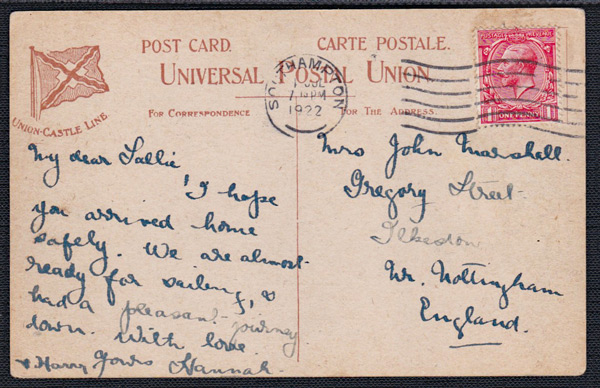 POST CARD. CARTE POSTALE.
UNIVERSAL POSTAL UNION.
UNION-CASTLE LINE.
FOR CORRESPONDENCE FOR THE ADDRESS.
SOUTHAMPTON
JUL
PM
1922
POSTAGE REVENUE
ONE PENNY
My dear Sallie
I hope
you arrived home
safely. We are almost
ready for sailing, &
had a pleasant journey
down. With love
& Harry Yours Hannah.
Mrs John Marshall.
Gregory Street
Ilkeston
Nr. Nottingham
England.